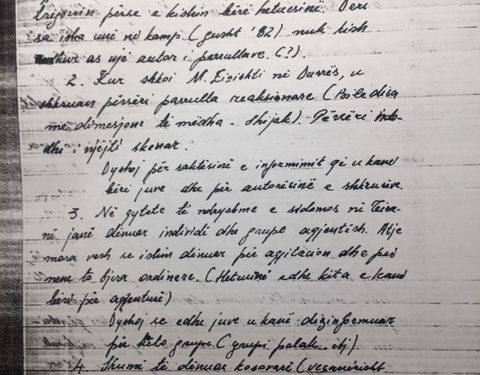 tregonin përse e kishin bërë hetuesinë. Deri
sa isha unë në kamp (gusht '82) nuk kish
ardhur as një autor i parrullave. (?).
2. Kur shkoi M. Elezishti në Durrës, u
shkruan përsëri parrulla reaksionare (Pati disa
me dimesjone të mëdha - Shijak). Përsëri ndo-
dhi i njëjti skenar.
Dyshoj për saktësinë e informimit që u kanë
bërë juve dhe për autorësinë e shkrusive.
3. Në qytete të ndryshme e sidomos në Tira-
në janë dënuar individë dhe grupe agjentësh. Atje
mora vesh se ishin dënuar për agjitacion dhe për
nem të tjera ordinere. (Hetuesinë edhe këta e kanë
bërë për agjenturë)
Dyshoj se edhe juve u kanë dizinformuar
për këto grupe (grupi polak, etj).
4. Shumë të dënuar kosovarë